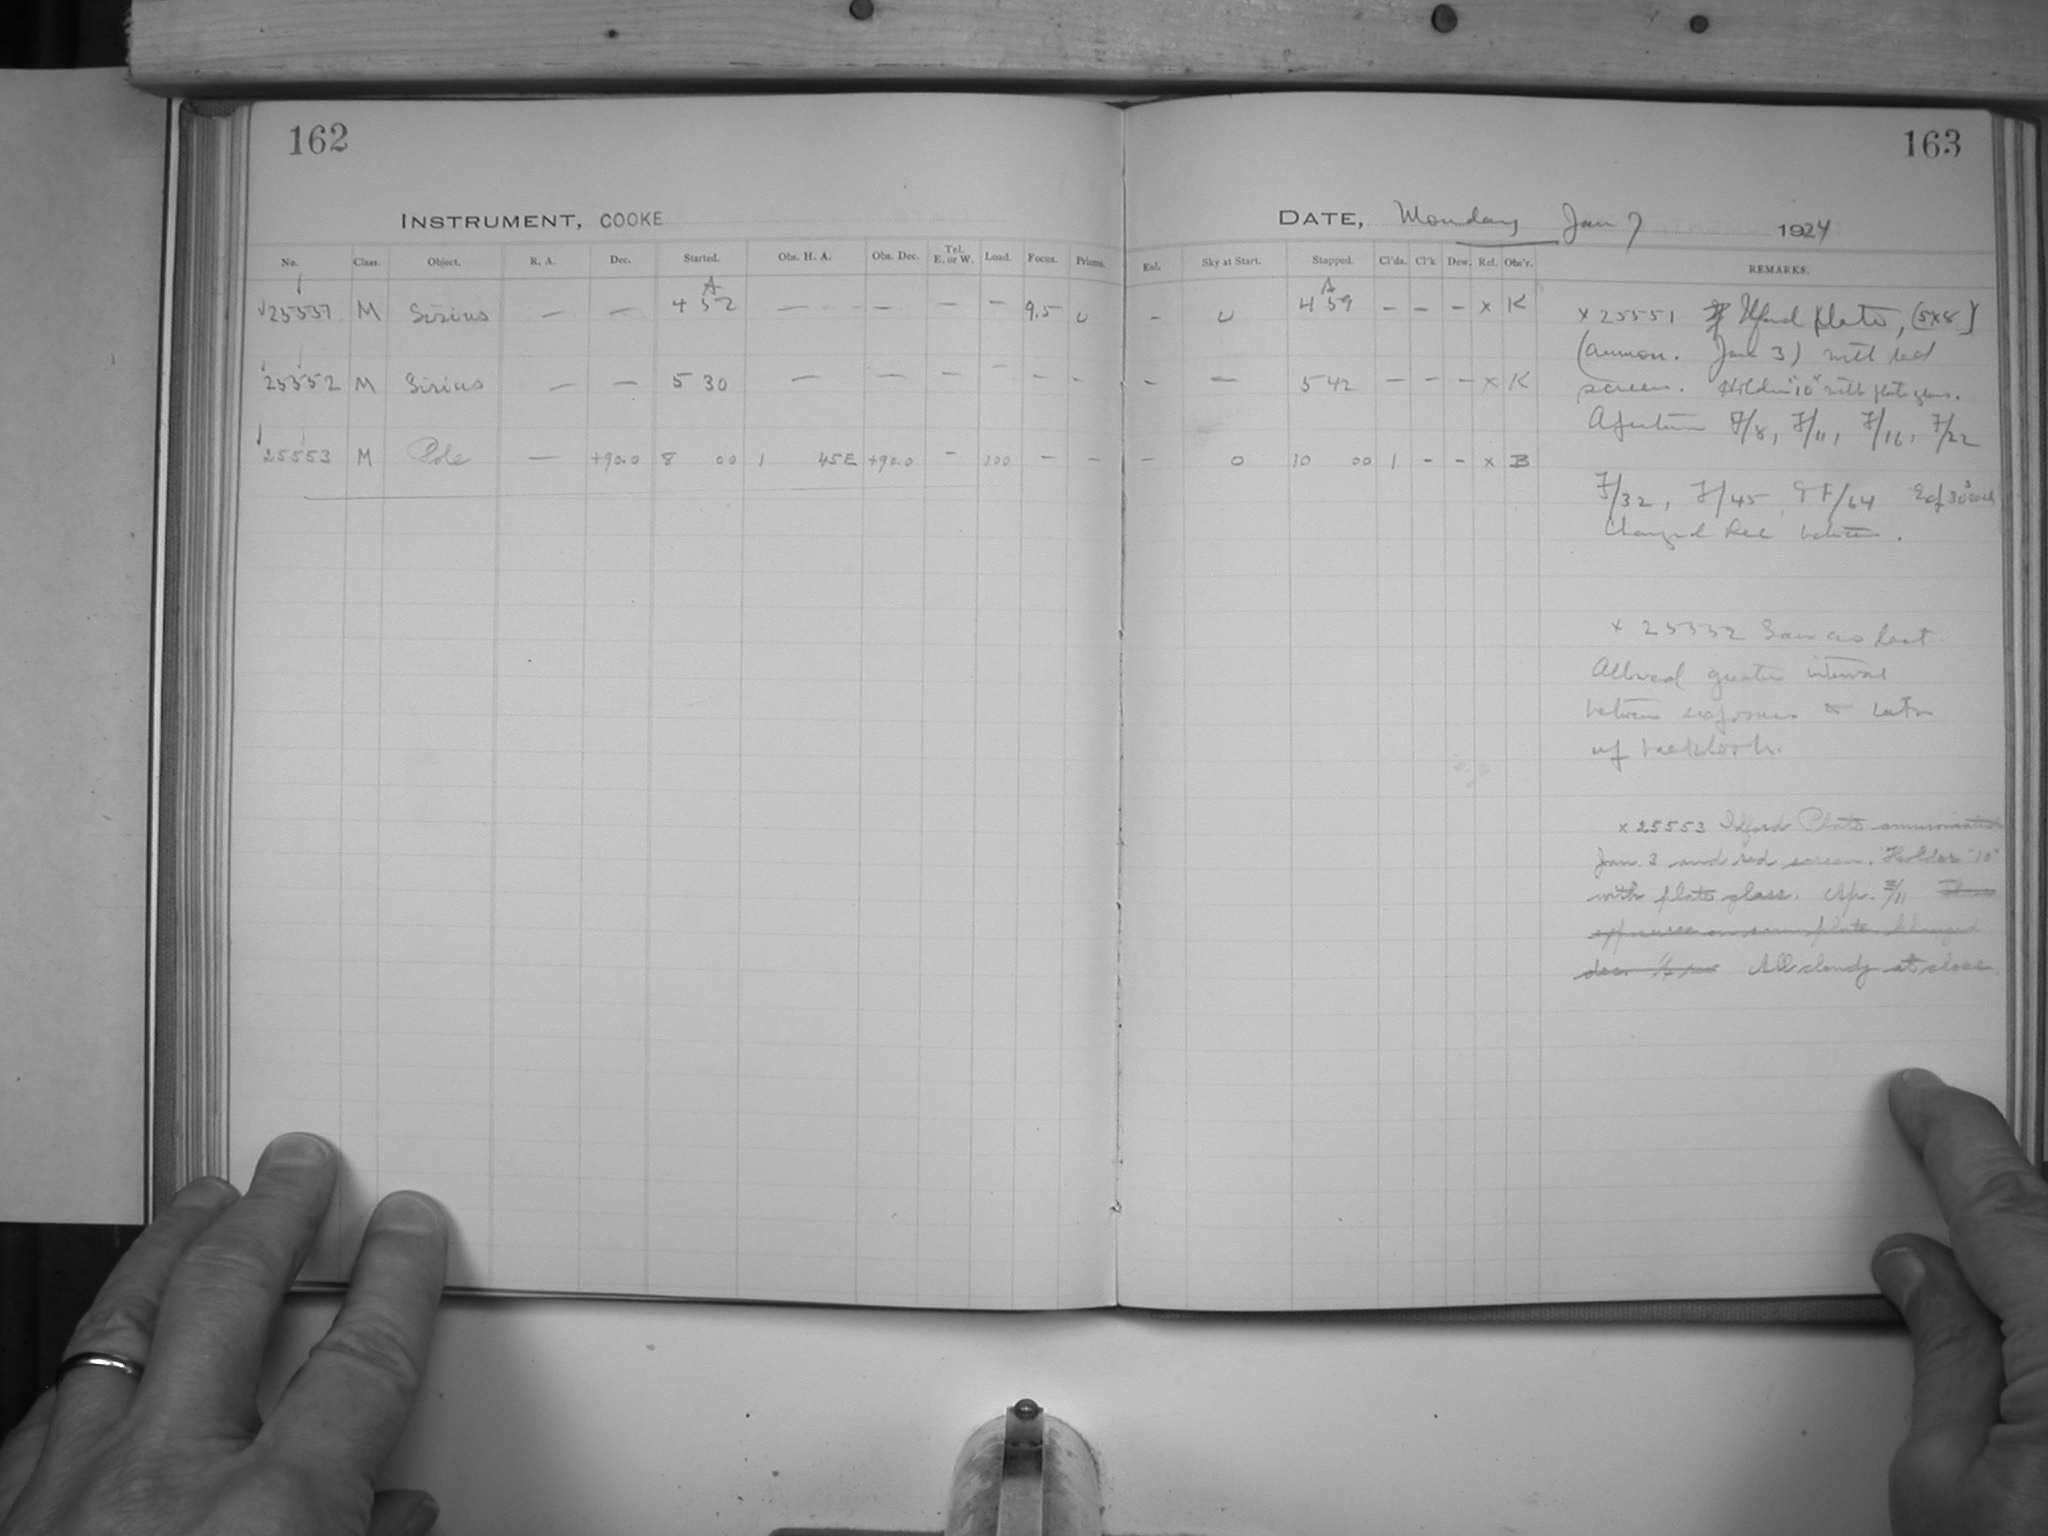 162
163
INSTRUMENT, COOKE
DATE, Monday Jan 7 1924
No. Class. Object. R. A. Dec. Started. Obs. H. A. Obs. Dec. Tel. E. or W. Load. Focus. Prisms.
Ent. Sky at Start. Stopped. Cl'ds. Cl'k Dew. Ref. Obs'r. REMARKS.
A
A
25551 M Sirius — — 4 52 — — — — 9.5 U
– U 4 59 – – – x K
x 25551 Ilford plate, (5x8)
(ammon. Jan 3) with red
25552 M Sirius — — 5 30 — — – – - -
– — 5 42 – – – x K
screen. Holder "10" with plate glass.
Aperture F/8, F/11, F/16, F/22
25553 M Pole — +90.0 8 00 1 45E +90.0 – 100 – –
– 0 10 00 1 – – x B
F/32, F/45, & F/64 Exp 30s each
Changed Dec between.
x 25552 Same as last
Allowed greater interval
between exposures to take
up backlash.
x 25553 Ilford Plate ammoniated
Jan. 3 and red screen. Holder "10"
with plate glass. Ap. F/11 Three
exposures on same plate. Changed
dec. All cloudy at close.